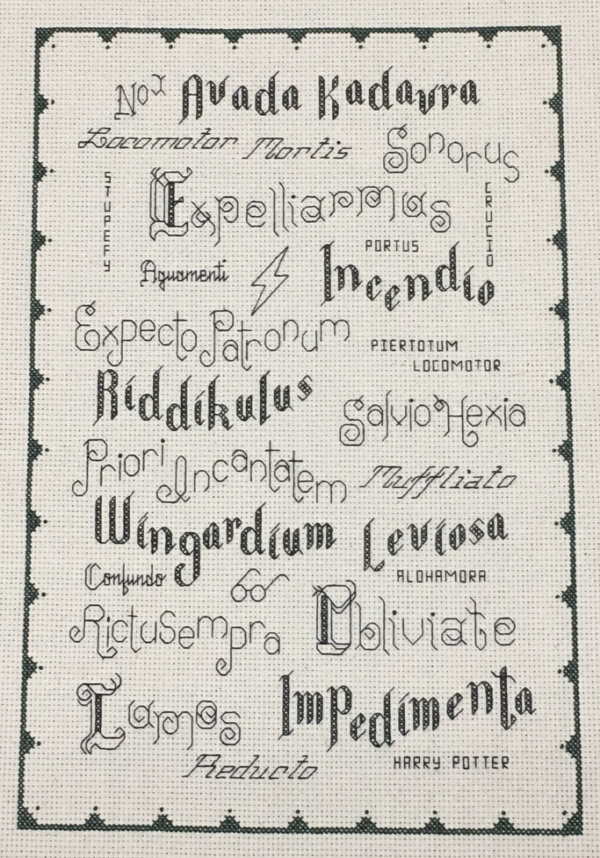 Nox Avada Kadavra
Locomotor Mortis Sonorus
STUPEFY Expelliarmus CRUCIO
PORTUS
Aguamenti Incendio
Expecto Patronum PIERTOTUM
LOCOMOTOR
Riddikulus Salvio Hexia
Priori Incantatem Muffliato
Wingardium Leviosa
Confundo ALOHAMORA
Rictusempra Obliviate
Lumos Impedimenta
Reducto HARRY POTTER